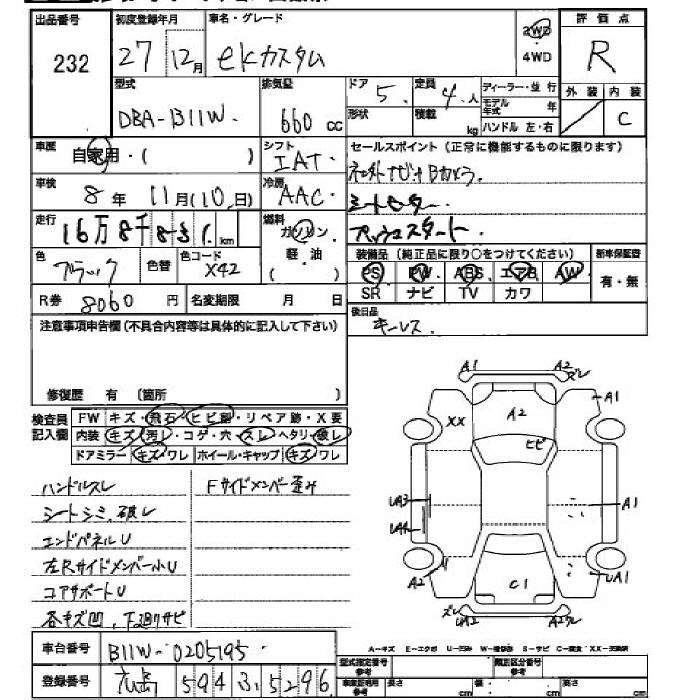 出品番号 初度登録年月 車名・グレード 評価点
232 27 12月 eKカスタム 2WD ・ 4WD R
型式 排気量 ドア 定員 ディーラー・並行 外装 内装
DBA-B11W 660 cc 5 4人 モデル年式 年 C
形状 積載 kg ハンドル 左・右
車歴 自家用・( ) シフト IAT セールスポイント(正常に機能するものに限ります)
車検 8年 11月(10日) 冷房 AAC 社外ナビ Bカメラ
シートヒーター
走行 16万8千831 km 燃料 ガソリン・軽油 ( ) プッシュスタート
色 ブラック 色替 色コード X42 装備品(純正品に限り○をつけてください) 新車保証書
PS PW ABS エアB AW 有・無
SR ナビ TV カワ
R券 8060円 名変期限 月 日
後日品
キーレス
注意事項申告欄(不具合内容等は具体的に記入して下さい)
修復歴 有 〔箇所 〕
検査員記入欄 FW キズ・飛石・ヒビ割・リペア跡・X要
内装 キズ・汚レ・コゲ・穴・スレ・ヘタリ・破レ
ドアミラー キズ・ワレ ホイール・キャップ キズ・ワレ
ハンドルスレ Fサイドメンバー歪み
シートシミ、破レ
エンドパネルU
左Rサイドメンバー小U
コアサポートU
各キズ凹、下廻リサビ
A1 A2 ズレ
XX A2 A1
ヒビ
UA3 A1
UA4
A2 U C1 UA1
ズレ UA2 A2 ズレ
車台番号 B11W-0205195
A-キズ E-エクボ U-凹み W-補修跡 S-サビ C-腐食 XX-交換済
登録番号 広島 594 3 5296
型式指定番号 参考 類別区分番号 参考
車庫証明用 参考 長さ cm 幅 cm 高さ cm